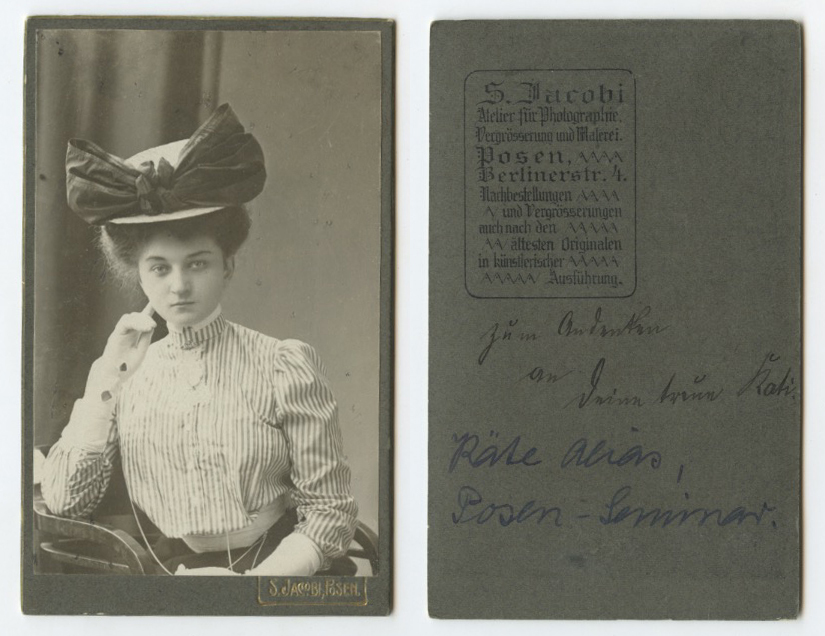 S. JACOBI, POSEN.
S. Jacobi
Atelier für Photographie,
Vergrösserung und Malerei.
Posen,
Berlinerstr. 4.
Nachbestellungen
und Vergrösserungen
auch nach den
ältesten Originalen
in künstlerischer
Ausführung.
Zum Andenken
an
Deine treue Kati.
Käte
Posen-Seminar.